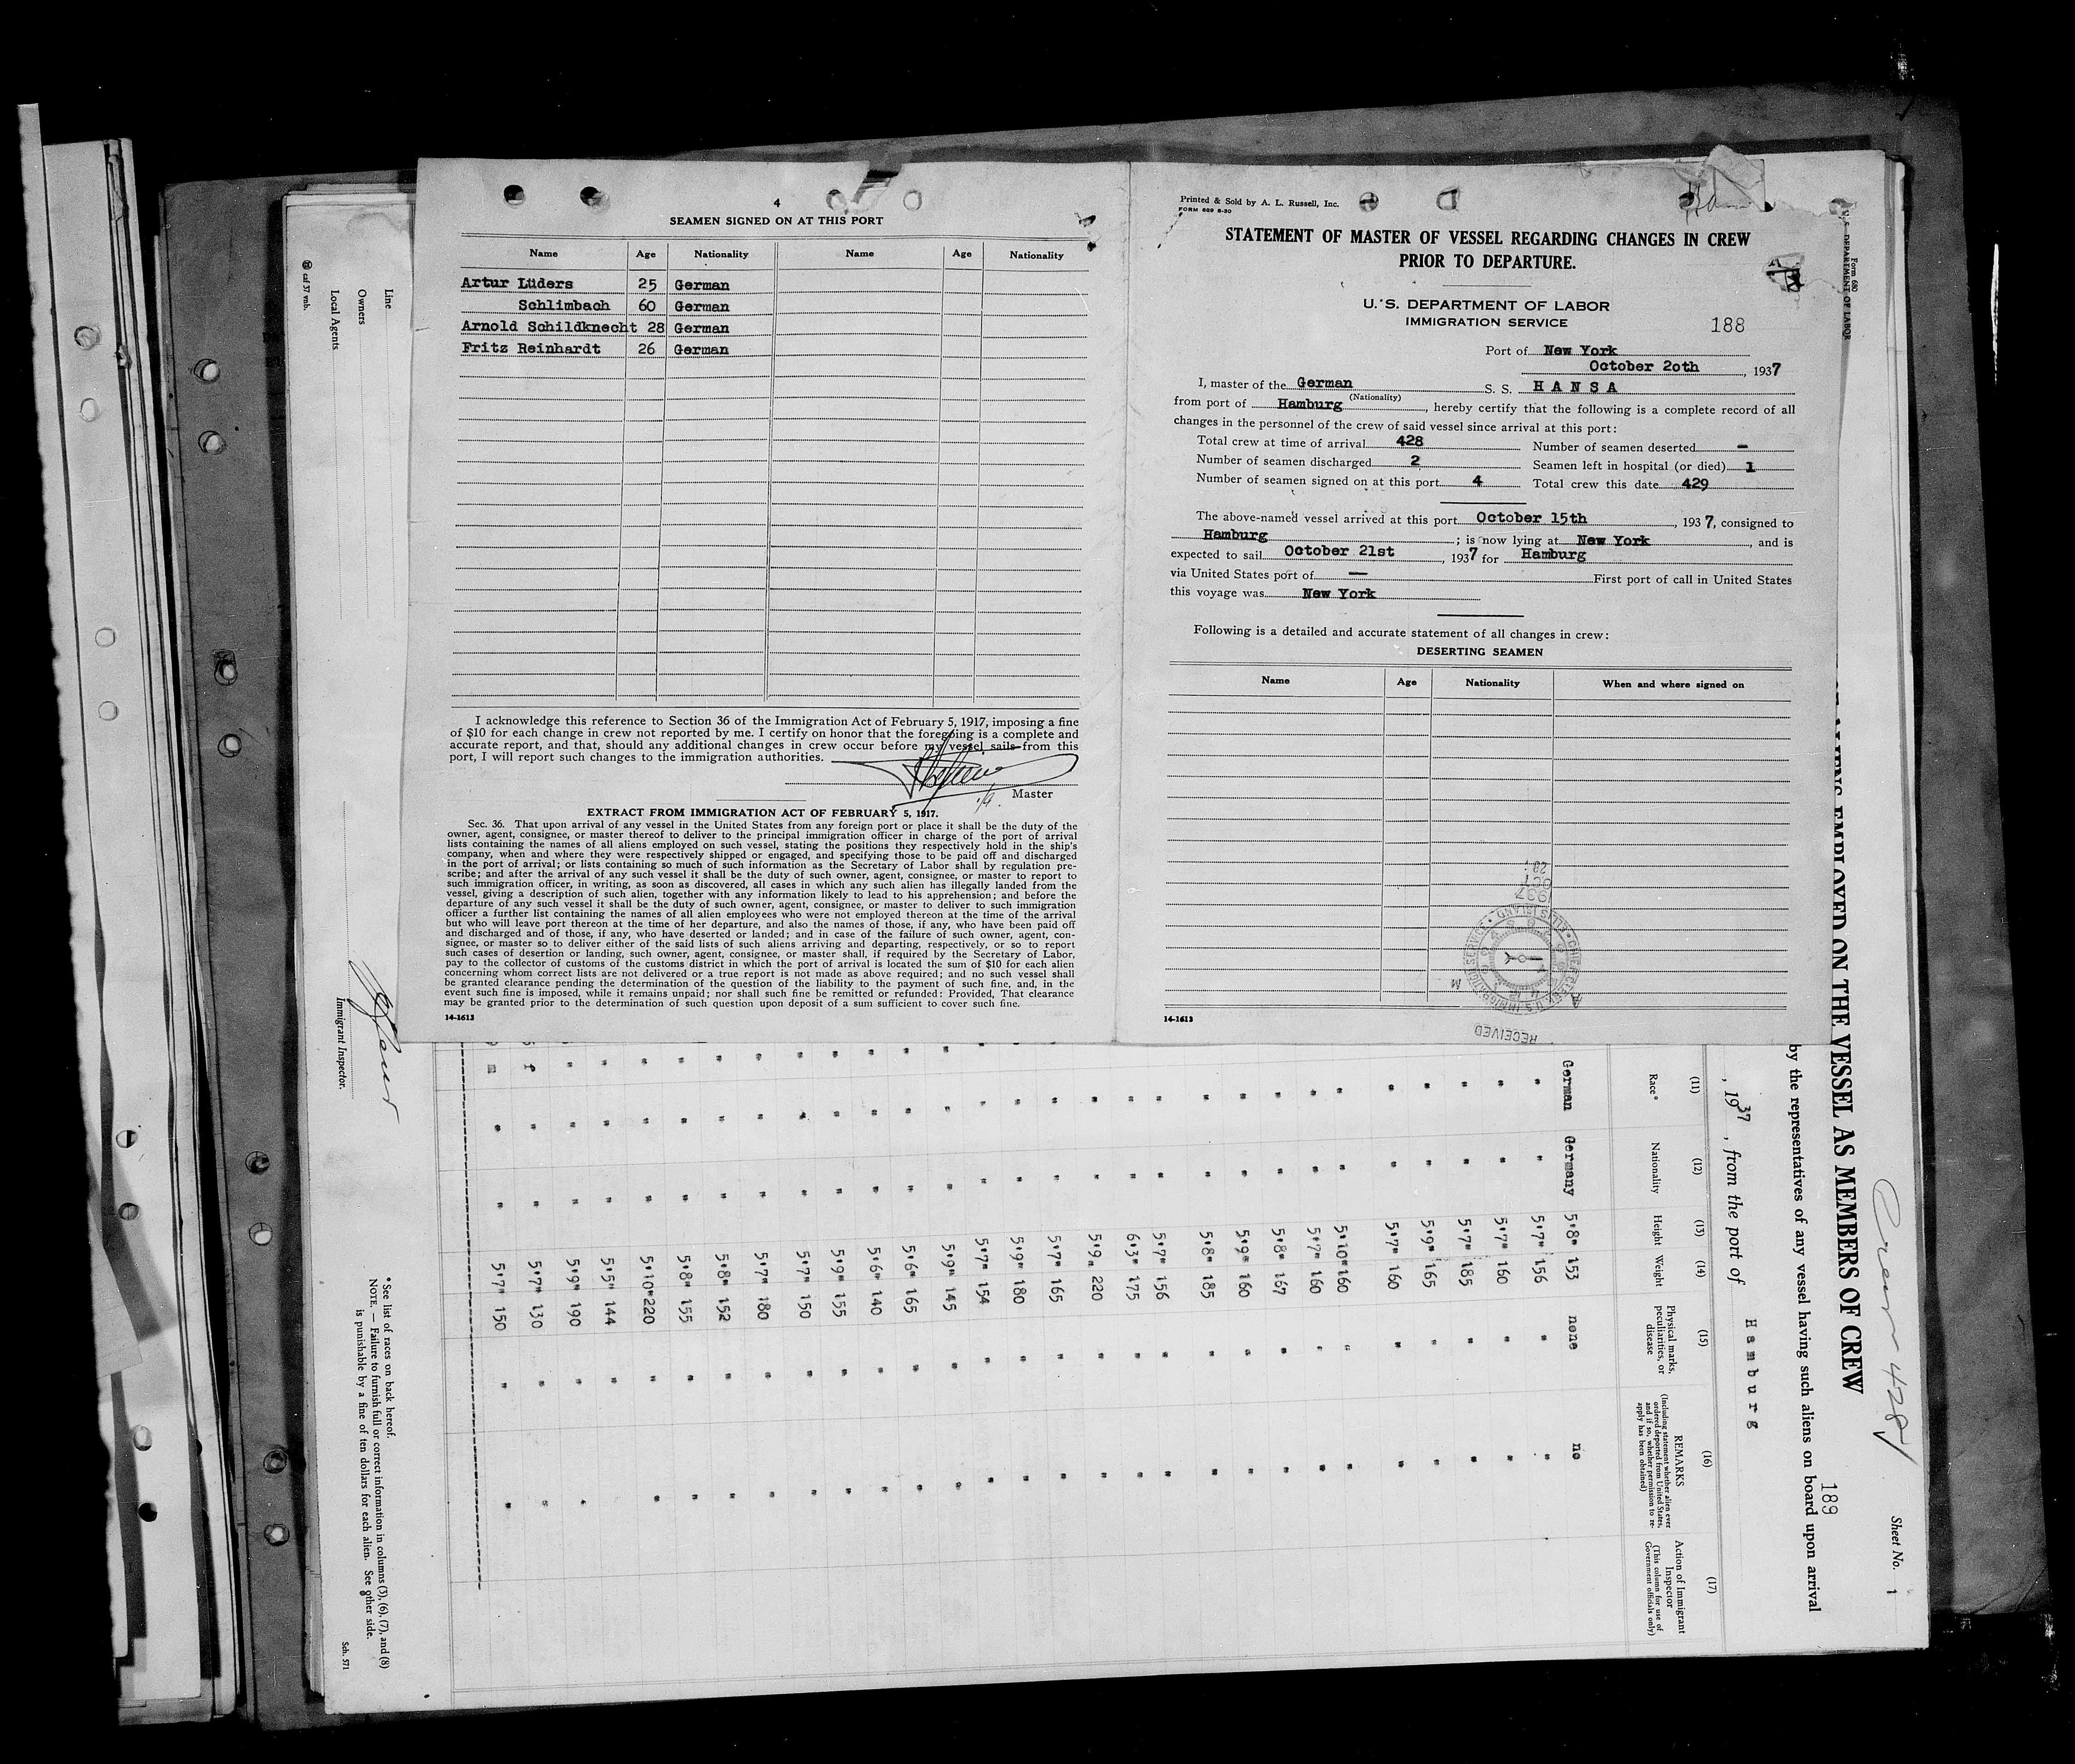 4
SEAMEN SIGNED ON AT THIS PORT
Name Age Nationality Name Age Nationality
Artur Lüders 25 German
Schlimbach 60 German
Arnold Schildknecht 28 German
Fritz Reinhardt 26 German
I acknowledge this reference to Section 36 of the Immigration Act of February 5, 1917, imposing a fine
of $10 for each change in crew not reported by me. I certify on honor that the foregoing is a complete and
accurate report, and that, should any additional changes in crew occur before my vessel sails from this
port, I will report such changes to the immigration authorities.
Master
EXTRACT FROM IMMIGRATION ACT OF FEBRUARY 5, 1917.
Sec. 36. That upon arrival of any vessel in the United States from any foreign port or place it shall be the duty of the
owner, agent, consignee, or master thereof to deliver to the principal immigration officer in charge of the port of arrival
lists containing the names of all aliens employed on such vessel, stating the positions they respectively hold in the ship's
company, when and where they were respectively shipped or engaged, and specifying those to be paid off and discharged
in the port of arrival; or lists containing so much of such information as the Secretary of Labor shall by regulation pre-
scribe; and after the arrival of any such vessel it shall be the duty of such owner, agent, consignee, or master to report to
such immigration officer, in writing, as soon as discovered, all cases in which any such alien has illegally landed from the
vessel, giving a description of such alien, together with any information likely to lead to his apprehension; and before the
departure of any such vessel it shall be the duty of such owner, agent, consignee, or master to deliver to such immigration
officer a further list containing the names of all alien employees who were not employed thereon at the time of the arrival
but who will leave port thereon at the time of her departure, and also the names of those, if any, who have been paid off
and discharged and of those, if any, who have deserted or landed; and in case of the failure of such owner, agent, con-
signee, or master so to deliver either of the said lists of such aliens arriving and departing, respectively, or so to report
such cases of desertion or landing, such owner, agent, consignee, or master shall, if required by the Secretary of Labor,
pay to the collector of customs of the customs district in which the port of arrival is located the sum of $10 for each alien
concerning whom correct lists are not delivered or a true report is not made as above required; and no such vessel shall
be granted clearance pending the determination of the question of the liability to the payment of such fine, and, in the
event such fine is imposed, while it remains unpaid; nor shall such fine be remitted or refunded: Provided, That clearance
may be granted prior to the determination of such question upon deposit of a sum sufficient to cover such fine.
14-1613
Printed & Sold by A. L. Russell, Inc.
FORM 689 8-30
STATEMENT OF MASTER OF VESSEL REGARDING CHANGES IN CREW
PRIOR TO DEPARTURE.
U. S. DEPARTMENT OF LABOR
IMMIGRATION SERVICE
188
Port of New York
October 2oth, 1937
I, master of the German S. S. HANSA
(Nationality)
from port of Hamburg, hereby certify that the following is a complete record of all
changes in the personnel of the crew of said vessel since arrival at this port:
Total crew at time of arrival 428 Number of seamen deserted –
Number of seamen discharged 2 Seamen left in hospital (or died) 1
Number of seamen signed on at this port 4 Total crew this date 429
The above-named vessel arrived at this port October 15th, 1937, consigned to
Hamburg; is now lying at New York, and is
expected to sail October 21st, 1937 for Hamburg
via United States port of — First port of call in United States
this voyage was New York
Following is a detailed and accurate statement of all changes in crew:
DESERTING SEAMEN
Name Age Nationality When and where signed on
OCT
1937
RECEIVED
14-1613
Form 680
U. S. DEPARTMENT OF LABOR
Sheet No. 1
189
428
ALIENS EMPLOYED ON THE VESSEL AS MEMBERS OF CREW
by the representatives of any vessel having such aliens on board upon arrival
, 1937, from the port of Hamburg
(11) (12) (13) (14) (15) (16) (17)
Race* Nationality Height Weight Physical marks, peculiarities, or disease
REMARKS
(Including statement whether alien ever
ordered deported from United States,
and if so, whether permission to re-
apply has been obtained)
Action of Immigrant
Inspector
(This column for use of
Government officials only)
German Germany 5'8" 153 none no
" " 5'7" 156 " "
" " 5'7" 160 " "
" " 5'7" 185 " "
" " 5'9" 165 " "
" " 5'7" 160 " "
" " 5'10" 160 " "
" " 5'7" 160 " "
" " 5'8" 167 " "
" " 5'9" 160 " "
" " 5'8" 185 " "
" " 5'7" 156 " "
" " 6'3" 175 " "
" " 5'9" 220 " "
" " 5'7" 165 " "
" " 5'9" 180 " "
" " 5'7" 154 " "
" " 5'9" 145 " "
" " 5'6" 165 " "
" " 5'6" 140 " "
" " 5'9" 155 " "
" " 5'7" 150 " "
" " 5'7" 180 " "
" " 5'8" 152 " "
" " 5'8" 155 " "
" " 5'10" 220 " "
" " 5'5" 144 "
" " 5'9" 190 " "
" " 5'7" 130 " "
" " 5'7" 150 " "
Line
Owners
Local Agents
Immigrant Inspector.
* See list of races on back hereof.
NOTE. — Failure to furnish full or correct information in columns (3), (6), (7), and (8)
is punishable by a fine of ten dollars for each alien. See other side.
Sch. 571